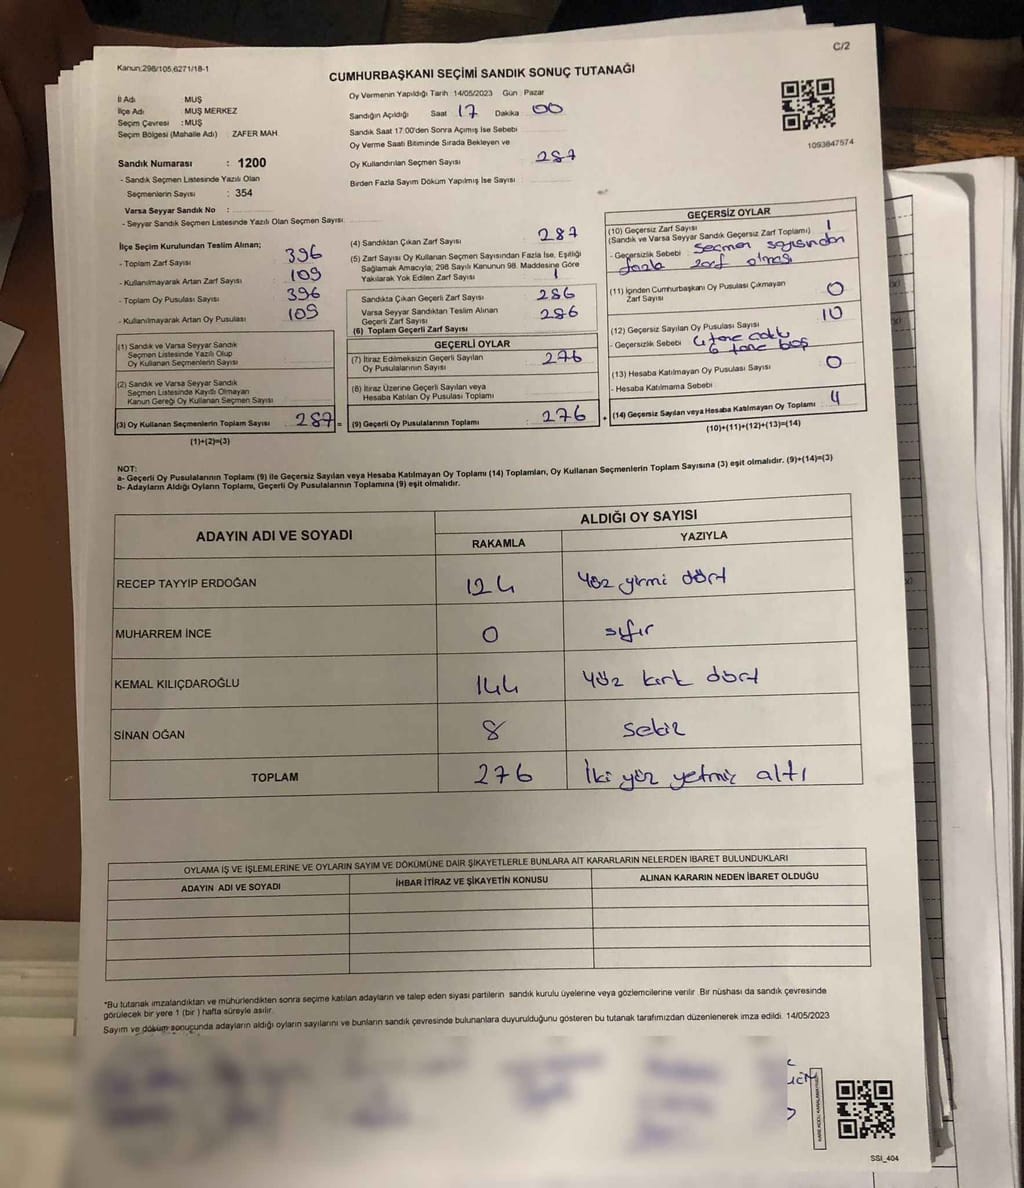 C/2
Kanun:298/105.6271/18-1
CUMHURBAŞKANI SEÇİMİ SANDIK SONUÇ TUTANAĞI
İl Adı : MUŞ
İlçe Adı : MUŞ MERKEZ
Seçim Çevresi : MUŞ
Seçim Bölgesi (Mahalle Adı) : ZAFER MAH
Sandık Numarası : 1200
- Sandık Seçmen Listesinde Yazılı Olan
Seçmenlerin Sayısı : 354
Varsa Seyyar Sandık No :
- Seyyar Sandık Seçmen Listesinde Yazılı Olan Seçmen Sayısı:
Oy Vermenin Yapıldığı Tarih : 14/05/2023 Gün : Pazar
Sandığın Açıldığı Saat 17 Dakika 00
Sandık Saat 17:00'den Sonra Açımış İse Sebebi
Oy Verme Saati Bitiminde Sırada Bekleyen ve
Oy Kullandırılan Seçmen Sayısı : 287
Birden Fazla Sayım Döküm Yapılmış İse Sayısı :
1093847574
İlçe Seçim Kurulundan Teslim Alınan;
- Toplam Zarf Sayısı : 396
- Kullanılmayarak Artan Zarf Sayısı : 109
- Toplam Oy Pusulası Sayısı : 396
- Kullanılmayarak Artan Oy Pusulası : 109
(1) Sandık ve Varsa Seyyar Sandık
Seçmen Listesinde Yazılı Olup
Oy Kullanan Seçmenlerin Sayısı
(2) Sandık ve Varsa Seyyar Sandık
Seçmen Listesinde Kayıtlı Olmayan
Kanun Gereği Oy Kullanan Seçmen Sayısı
(3) Oy Kullanan Seçmenlerin Toplam Sayısı : 287 =
(1)+(2)=(3)
(4) Sandıktan Çıkan Zarf Sayısı : 287
(5) Zarf Sayısı Oy Kullanan Seçmen Sayısından Fazla İse, Eşitliği
Sağlamak Amacıyla; 298 Sayılı Kanunun 98. Maddesine Göre
Yakılarak Yok Edilen Zarf Sayısı : 1
Sandıkta Çıkan Geçerli Zarf Sayısı : 286
Varsa Seyyar Sandıktan Teslim Alınan
Geçerli Zarf Sayısı : 286
(6) Toplam Geçerli Zarf Sayısı
GEÇERLİ OYLAR
(7) İtiraz Edilmeksizin Geçerli Sayılan
Oy Pusulalarının Sayısı : 276
(8) İtiraz Üzerine Geçerli Sayılan veya
Hesaba Katılan Oy Pusulası Toplamı
(9) Geçerli Oy Pusulalarının Toplamı : 276 +
GEÇERSİZ OYLAR
(10) Geçersiz Zarf Sayısı
(Sandık ve Varsa Seyyar Sandık Geçersiz Zarf Toplamı) : 1
- Geçersizlik Sebebi : seçmen sayısından
fazla zarf olması
(11) İçinden Cumhurbaşkanı Oy Pusulası Çıkmayan
Zarf Sayısı : 0
(12) Geçersiz Sayılan Oy Pusulası Sayısı : 10
- Geçersizlik Sebebi 4 tane
6 tane boş
(13) Hesaba Katılmayan Oy Pusulası Sayısı : 0
- Hesaba Katılmama Sebebi
(14) Geçersiz Sayılan veya Hesaba Katılmayan Oy Toplamı :
(10)+(11)+(12)+(13)=(14)
NOT:
a- Geçerli Oy Pusulalarının Toplamı (9) ile Geçersiz Sayılan veya Hesaba Katılmayan Oy Toplamı (14) Toplamları, Oy Kullanan Seçmenlerin Toplam Sayısına (3) eşit olmalıdır. (9)+(14)=(3)
b- Adayların Aldığı Oyların Toplamı, Geçerli Oy Pusulalarının Toplamına (9) eşit olmalıdır.
ADAYIN ADI VE SOYADI
ALDIĞI OY SAYISI
RAKAMLA YAZIYLA
RECEP TAYYİP ERDOĞAN 124 Yüz yirmi dört
MUHARREM İNCE 0 sıfır
KEMAL KILIÇDAROĞLU 144 Yüz kırk dört
SİNAN OĞAN 8 sekiz
TOPLAM 276 İki yüz yetmiş altı
OYLAMA İŞ VE İŞLEMLERİNE VE OYLARIN SAYIM VE DÖKÜMÜNE DAİR ŞİKAYETLERLE BUNLARA AİT KARARLARIN NELERDEN İBARET BULUNDUKLARI
ADAYIN ADI VE SOYADI İHBAR İTİRAZ VE ŞİKAYETİN KONUSU ALINAN KARARIN NEDEN İBARET OLDUĞU
*Bu tutanak imzalandıktan ve mühürlendikten sonra seçime katılan adayların ve talep eden siyasi partilerin sandık kurulu üyelerine veya gözlemcilerine verilir. Bir nüshası da sandık çevresinde
görülecek bir yere 1 (bir ) hafta süreyle asılır.
Sayım ve döküm sonucunda adayların aldığı oyların sayılarını ve bunların sandık çevresinde bulunanlara duyurulduğunu gösteren bu tutanak tarafımızdan düzenlenerek imza edildi. 14/05/2023
SSİ_404